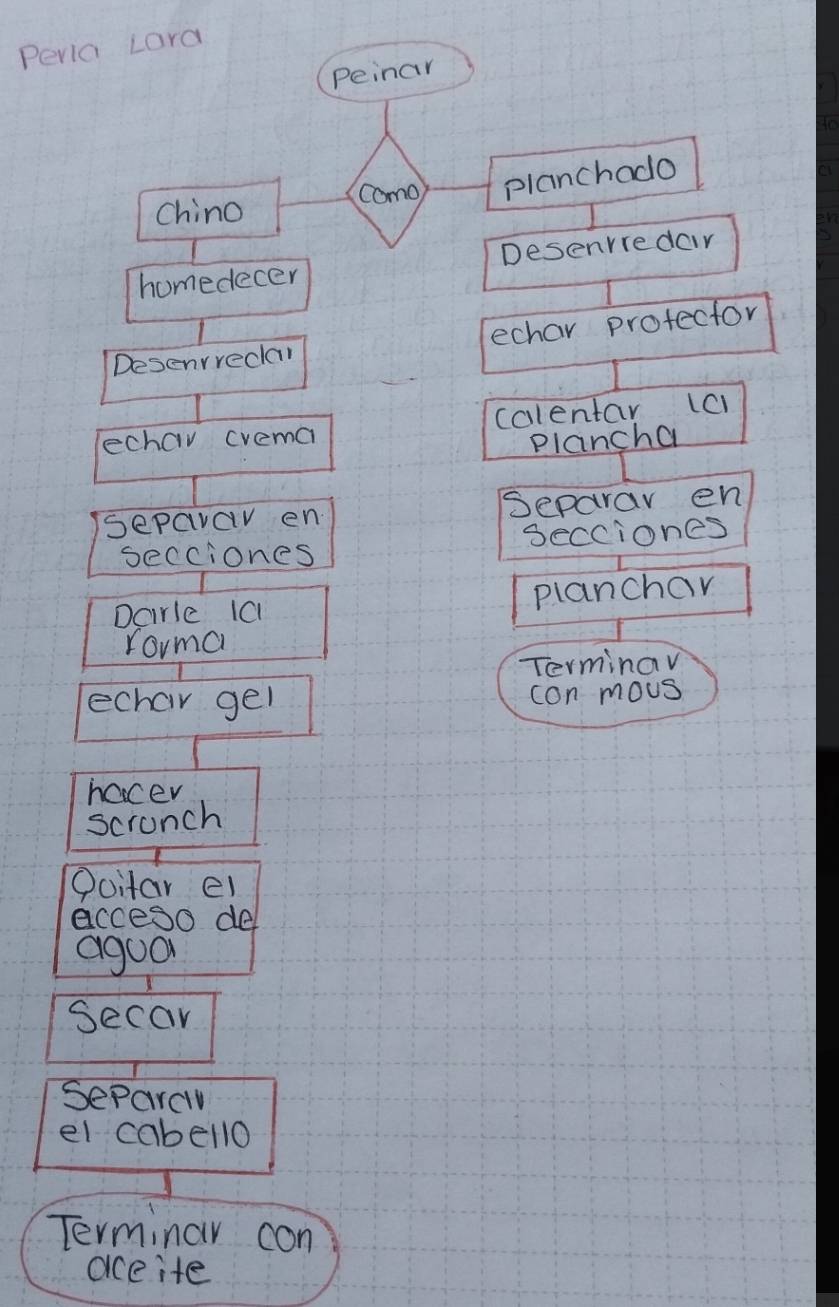 Perla Lara
Peinar
como
Chino
humedecer
Desenrredar
echar crema
Separar en
secciones
Darle la
forma
echar gel
hacer
scrunch
Quitar el
acceso de
agua
Secar
Separar
el cabello
Terminar con
aceite
Planchado
Desenrredar
echar Protector
calentar la
Plancha
Separar en
secciones
Planchar
Terminar
con mous